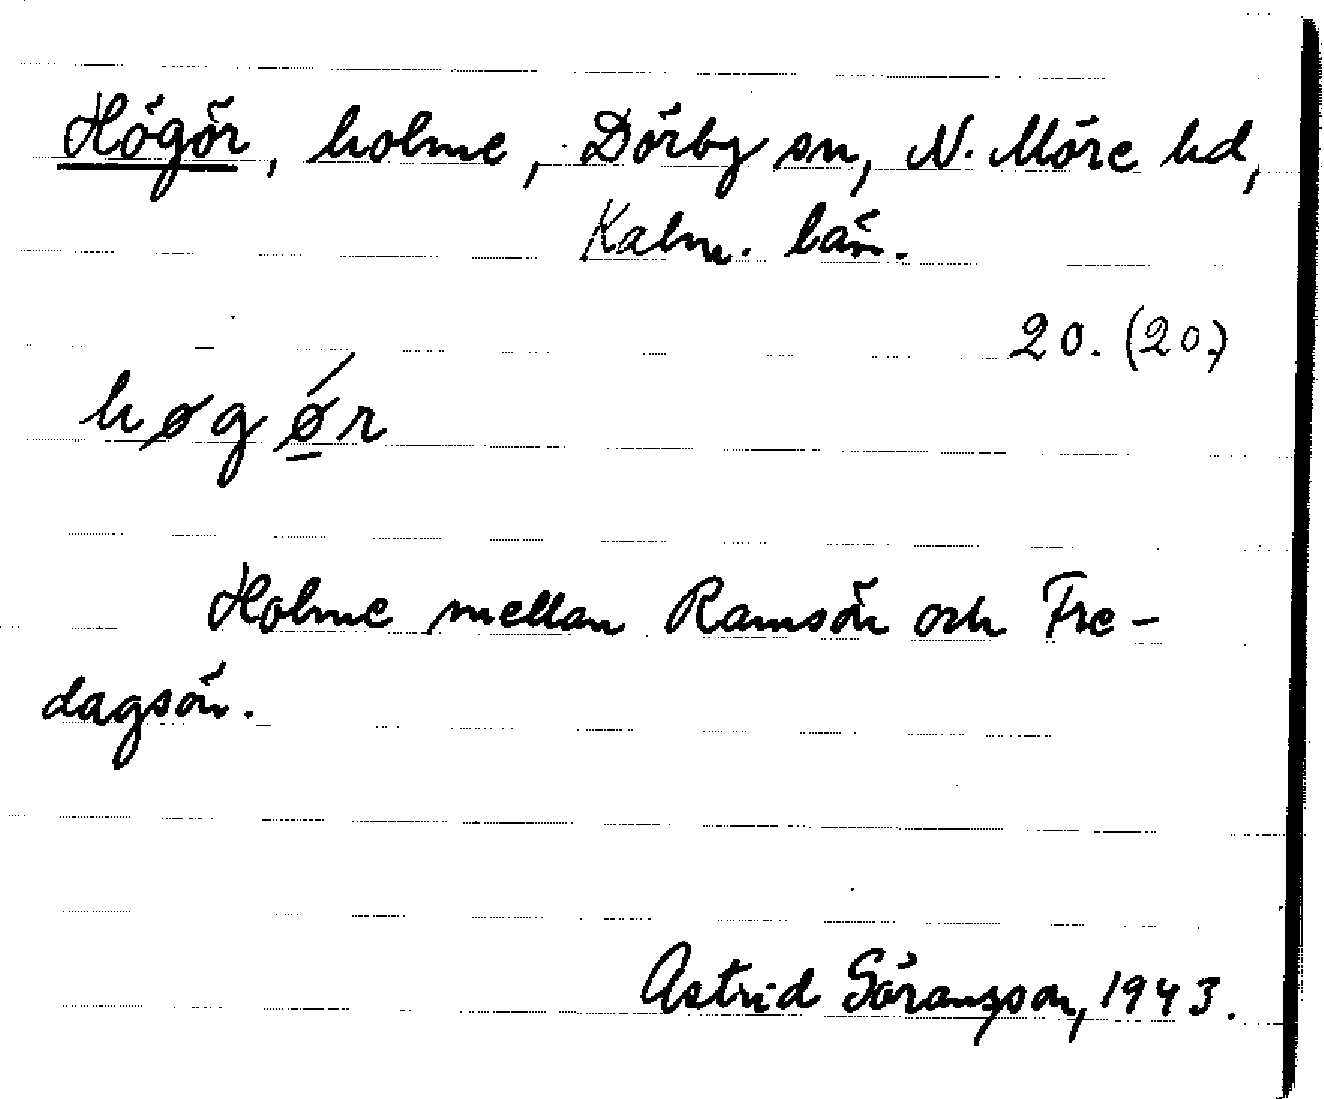 Högör, holme, Dörby sn, N. Möre hd,
Kalm. län.
20. (20.)
høgǿ̲r
Holme mellan Ramsön och Fre-
dagsön.
Astrid Göransson, 1943.